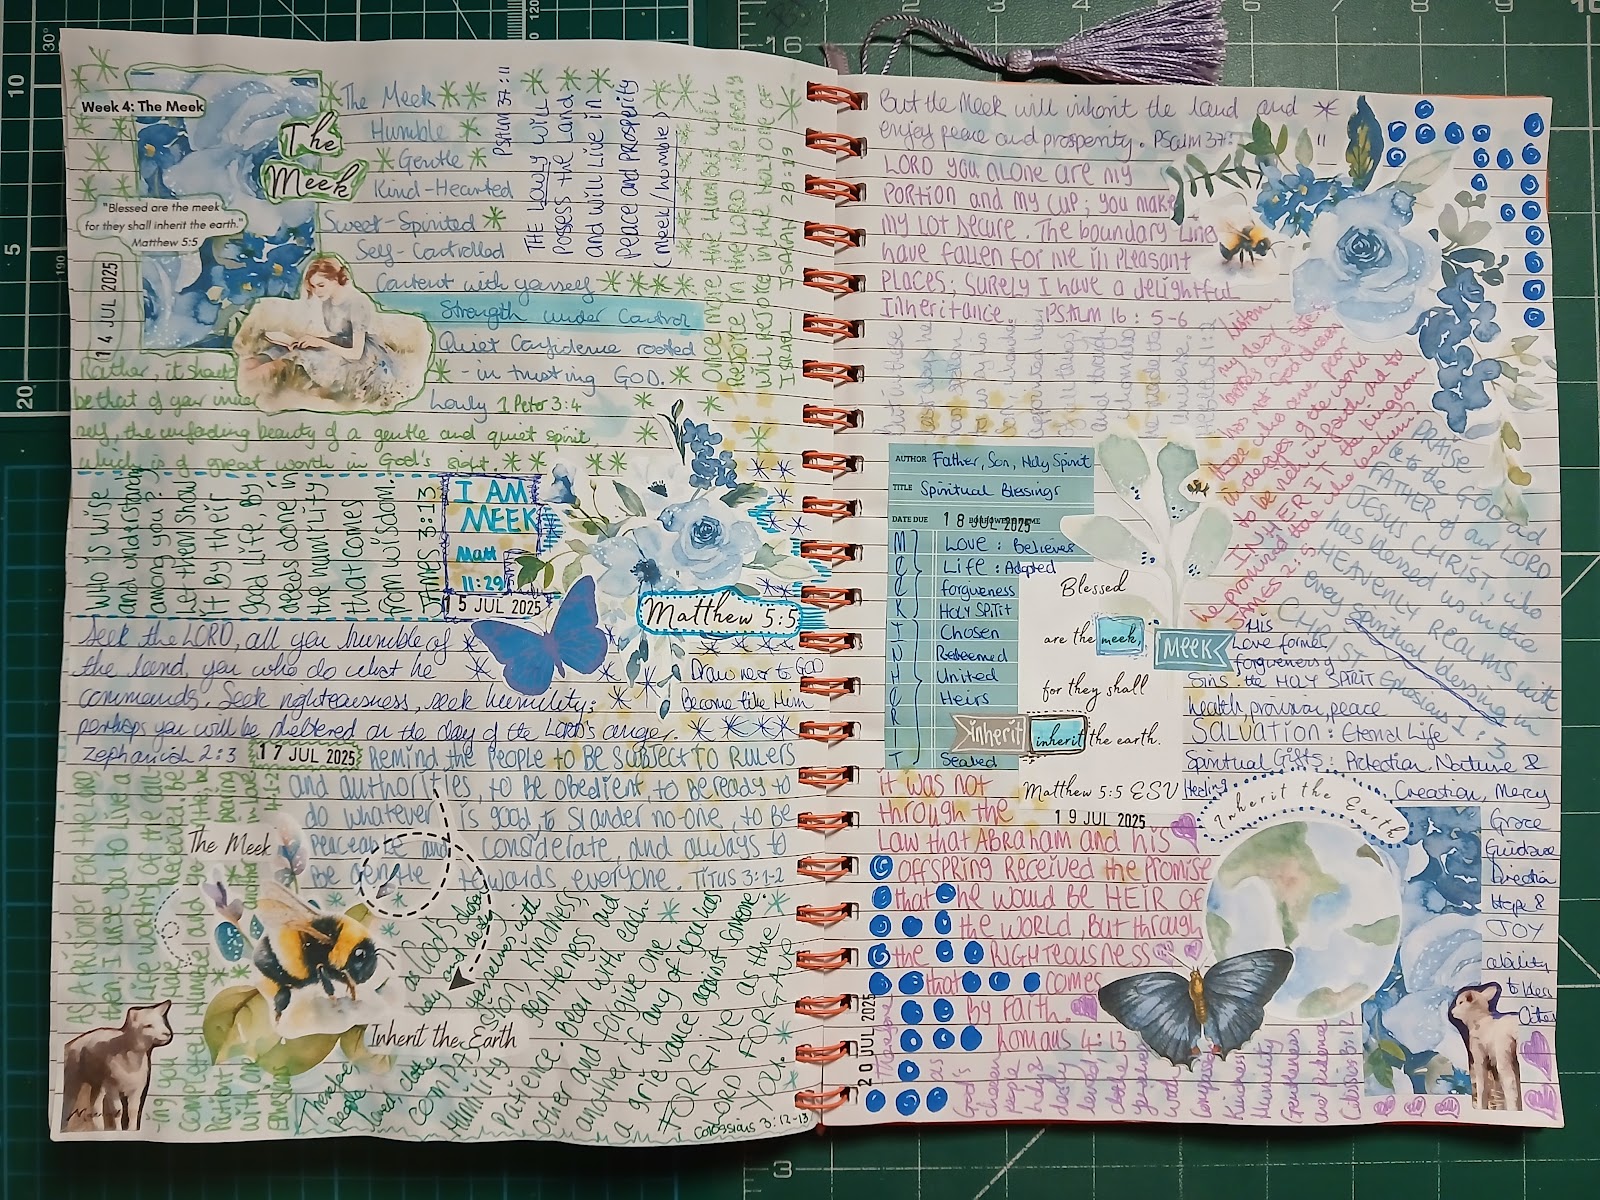 Week 4: The Meek
The
Meek
"Blessed are the meek
for they shall inherit the earth."
Matthew 5:5
14 JUL 2025
The Meek
Humble
Gentle
Kind-Hearted
Sweet-Spirited
Self-Controlled
Content with yourself
Strength under Control
Quiet Confidence rooted
- in trusting GOD.
Lowly 1 Peter 3:4
Psalm 37:11
THE LOWLY WILL
POSSESS THE LAND
AND WILL LIVE IN
PEACE AND PROSPERITY
(meek/humble)
ONCE MORE THE HUMBLE WILL
REJOICE IN THE LORD THE NEEDY
WILL REJOICE IN THE HOLY ONE OF
ISRAEL ISAIAH 29:19
Rather, it should
be that of your inner
self, the unfading beauty of a gentle and quiet spirit,
which is of great worth in God's sight.
WHO IS WISE
and understanding
among you?
Let them show
it by their
good life, by
deeds done in
the humility
that comes
from wisdom.
JAMES 3:13
I AM
MEEK
Matt
11:29
15 JUL 2025
Matthew 5:5
Seek the LORD, all you humble of
the land, you who do what he
commands. Seek righteousness, seek humility;
perhaps you will be sheltered on the day of the Lord's anger.
Zephaniah 2:3
Draw near to GOD
Become like Him
17 JUL 2025
Remind the people to be subject to rulers
and authorities, to be obedient, to be ready to
do whatever is good to slander no-one, to be
peaceable and considerate, and always to
be gentle towards everyone. Titus 3:1-2
AS A PRISONER FOR THE LORD
then, I urge you to live a
life worthy of the call
-ing you have received. Be
completely humble and gentle; be
patient, bearing
with one another in love
Ephesians 4:1-2
The Meek
Inherit the Earth
Therefore, as God's chosen
people, holy and dearly
loved, clothe yourselves with
compassion, kindness,
humility, gentleness and
patience. Bear with each
other and forgive one
another if any of you has
a grievance against someone.
FORGIVE as the
LORD FORGAVE
YOU.
Colossians 3:12-13
But the Meek will inherit the land and
enjoy peace and prosperity. Psalm 37:11
LORD you alone are my
portion and my cup; you make
my lot secure. The boundary lines
have fallen for me in pleasant
places; surely I have a delightful
inheritance. Psalm 16:5-6
but in these
last days he
has spoken
to us by his
son, whom he
appointed heir
of all things,
and through
whom also
he made the
universe.
Hebrews 1:2
Listen,
my dear
has not God chosen
those who are poor
in the eyes of the world
to be rich in faith and to
INHERIT the kingdom
he promised those who love him?
JAMES 2:5
PRAISE
be to the GOD and
FATHER of our LORD
JESUS CHRIST, who
has blessed us in the
HEAVENLY REALMS with
every spiritual blessing in
CHRIST Ephesians 1:3
AUTHOR Father, Son, Holy Spirit
TITLE Spiritual Blessings
DATE DUE
18 JUL 2025
Love: Believes
Life: Adopted
forgiveness
HOLY SPIRIT
Chosen
Redeemed
United
Heirs
Sealed
Blessed
are the meek,
for they shall
inherit the earth.
Matthew 5:5 ESV
MEEK
inherit
19 JUL 2025
His
Love former
forgiveness of
sins. the HOLY SPIRIT
health, provision, peace
Salvation: Eternal Life
Spiritual Gifts: Protection. Nurture &
Healing
Creation, Mercy
Grace
Guidance
Direction
Hope &
JOY
ability
to
Inherit the Earth
it was not
through the
Law that Abraham and his
offspring received the promise
that he would be HEIR OF
the world, but through
the RIGHTEOUSNESS
that comes
by faith.
Romans 4:13
20 JUL 2025
Therefore
as
God's
chosen
people
holy &
dearly
loved
clothe
yourselves
with
compassion
kindness
Humility
Gentleness
and patience
Colossians 3:12